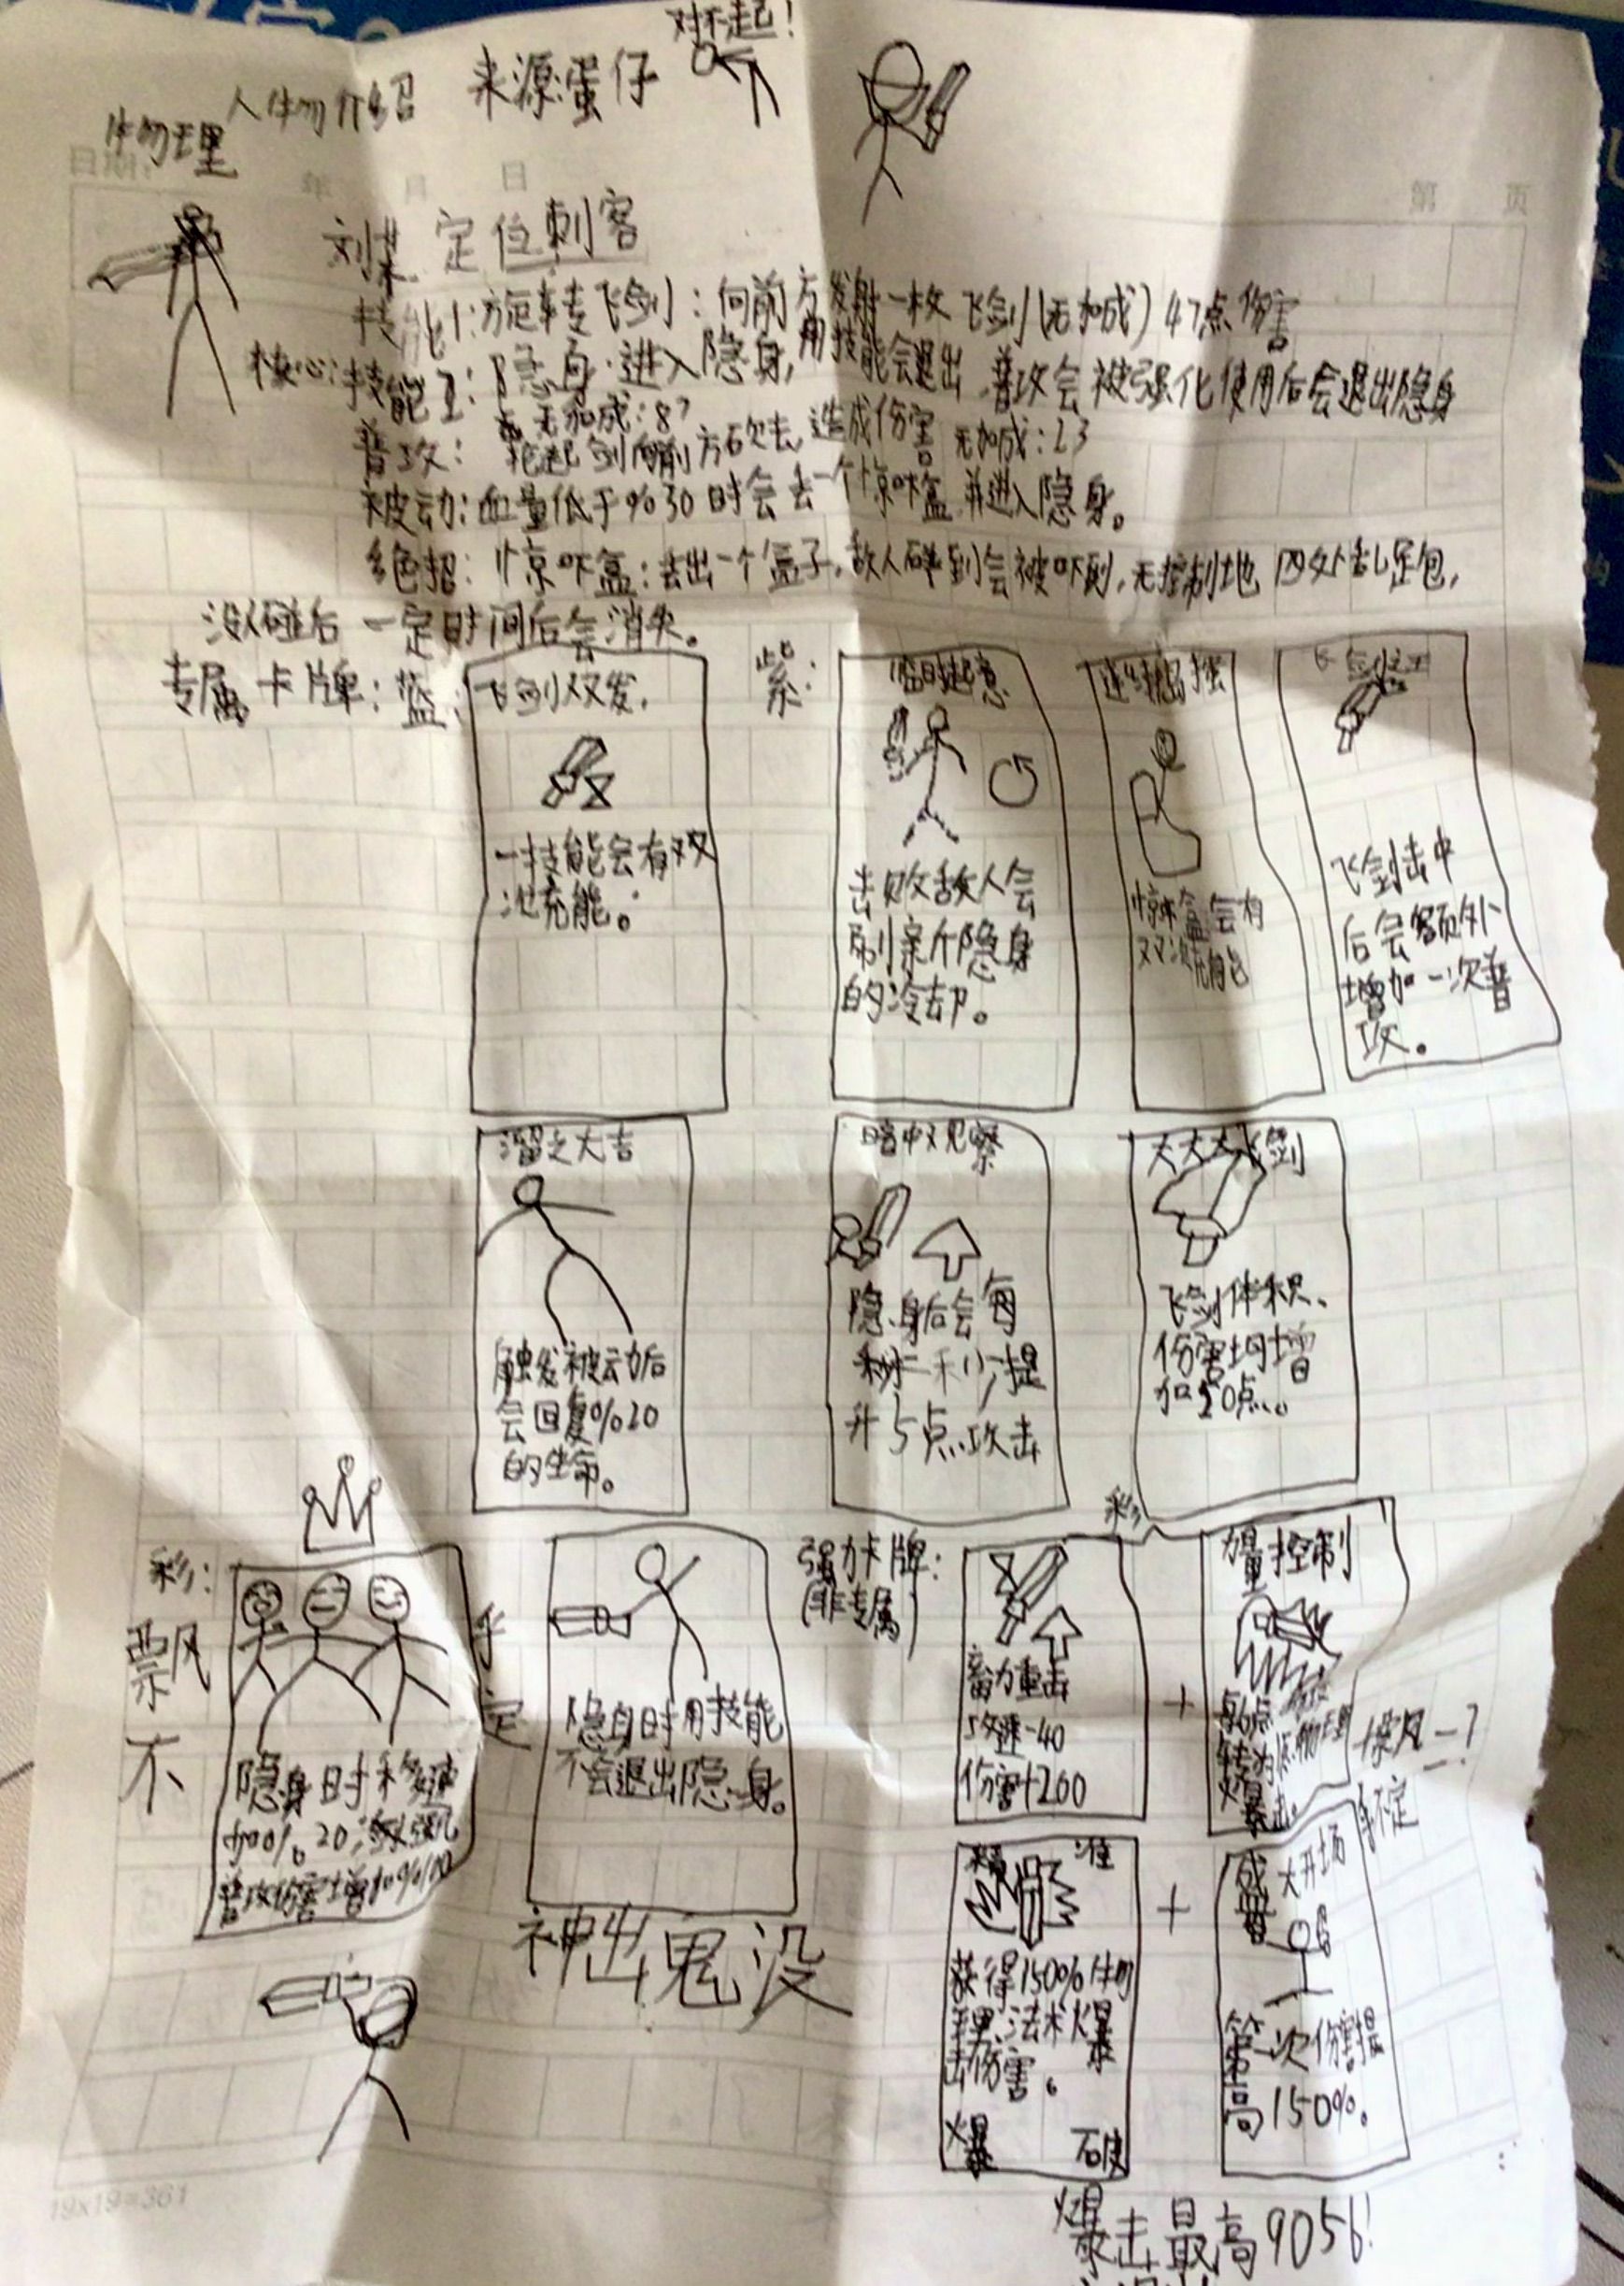 对不起!
人物介绍 来源蛋仔
物理
日期: 年 月 日
第 页
刘某 定位刺客
技能1:旋转飞剑:向前方发射一枚飞剑(无加成)47点伤害
核心:技能2:隐身:进入隐身,用技能会退出 普攻会被强化使用后会退出隐身
无加成:87
普攻: 轮起剑向前方砍去,造成伤害 无加成:23
被动:血量低于%30时会丢一个惊吓盒并进入隐身。
绝招:惊吓盒:丢出一个盒子,敌人碰到会被吓到,无控制地四处乱跑,
没人碰后一定时间后会消失。
专属卡牌:蓝:
飞剑双发,
一技能会有双次充能。
溜之大吉
触发被动后
会回复%20
的生命。
紫:
临时起意
击败敌人会
刷新隐身
的冷却。
惊吓盒会有
双次充能
飞剑击中
后会额外
增加一次普
攻。
暗中观察
隐身后会每
秒提
升5点攻击
大大大飞剑
飞剑体积、
伤害均增
加20点。
彩:
飘 乎
不 定
隐身时移速
加%20,强化
普攻伤害增加%10
隐身时用技能
不会退出隐身。
神出鬼没
强力卡牌:
(非专属)
彩
蓄力重击
攻速-40
伤害+200
+
力量控制
每6点
转为
暴击。
精准
获得150%物
理、法术爆
击伤害。
爆 破
+
盛大开场
第一次伤害提
高150%。
爆击最高9056!
19×19=361